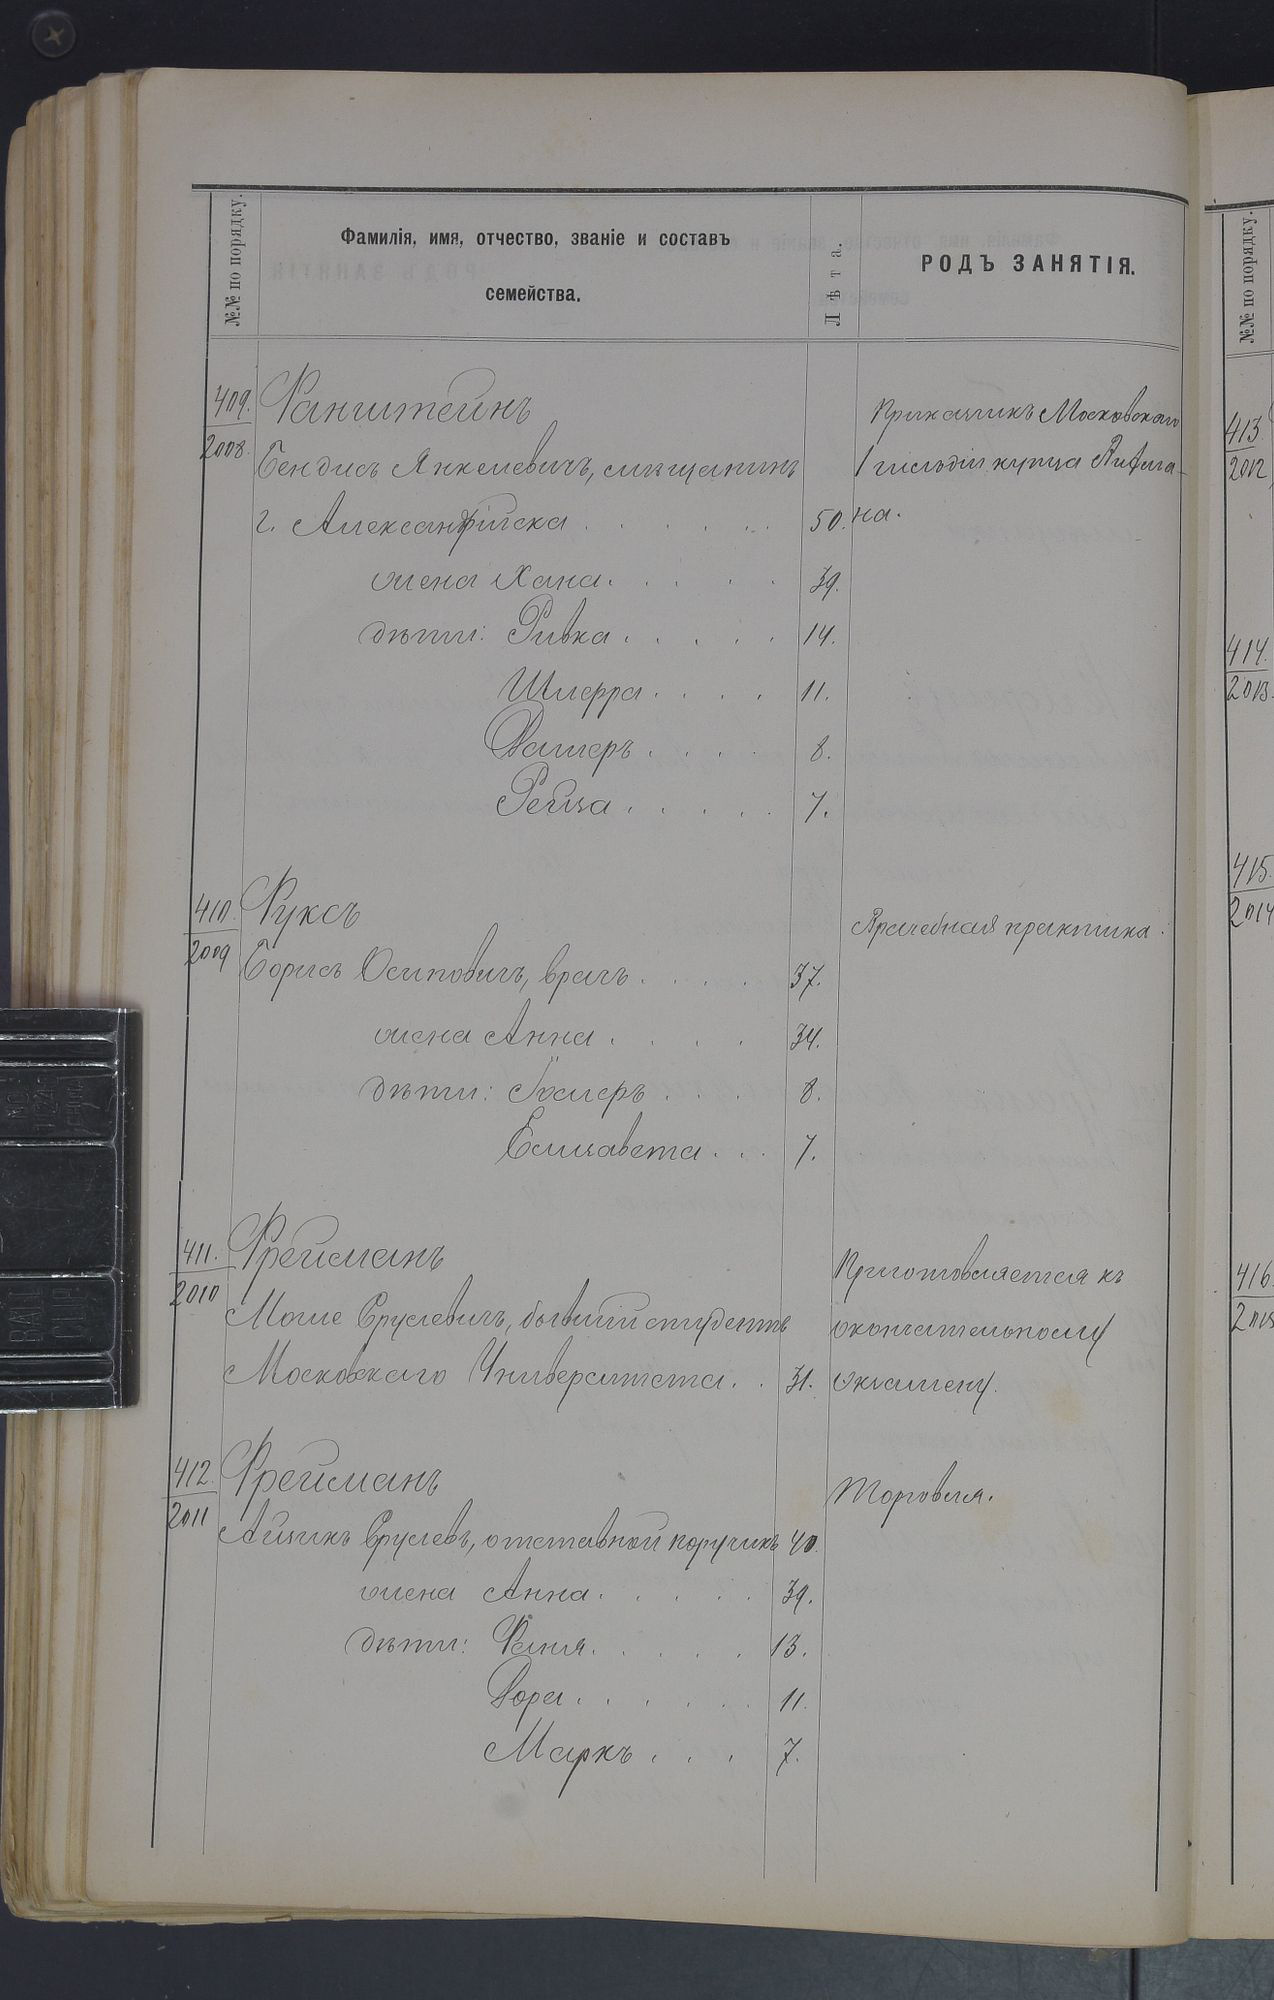 №№ по порядку.
Фамилія, имя, отчество, званіе и составъ
семейства.
Лѣта.
РОДЪ ЗАНЯТІЯ.
409.
2008.
Фанштейнъ
Бендисъ Янкелевичъ, мѣщанинъ
г. Александрійска . . . . . 50.
Приказчикъ Московскаго
1 гильдіи купца
на.
жена Хана. . . . . 39.
дѣти: Ривка . . . . . 14.
11.
8.
Рейза . . . . . 7.
410.
2009
Фуксъ
Борисъ Осиповичъ, врачъ . . . . 37.
Врачебная практика.
жена Анна . . . . 34.
дѣти: 8.
Елизавета . . . 7.
411.
2010
Фрейманъ
Моше Сруслевичъ, бывшій студентъ
Московскаго Университета. . 31.
Приготовляется къ
окончательному
экзамену.
412.
2011
Фрейманъ
Айзикъ Срулевъ, отставной поручикъ 40.
Торговля.
жена Анна. . . . . 39.
дѣти: Фаня. . . . . 13.
Дора . . . . . 11.
Маркъ . . . 7.
№№ по порядку.
413.
2012
414.
2013.
415.
2014
416.
2015
BALL
CLIP